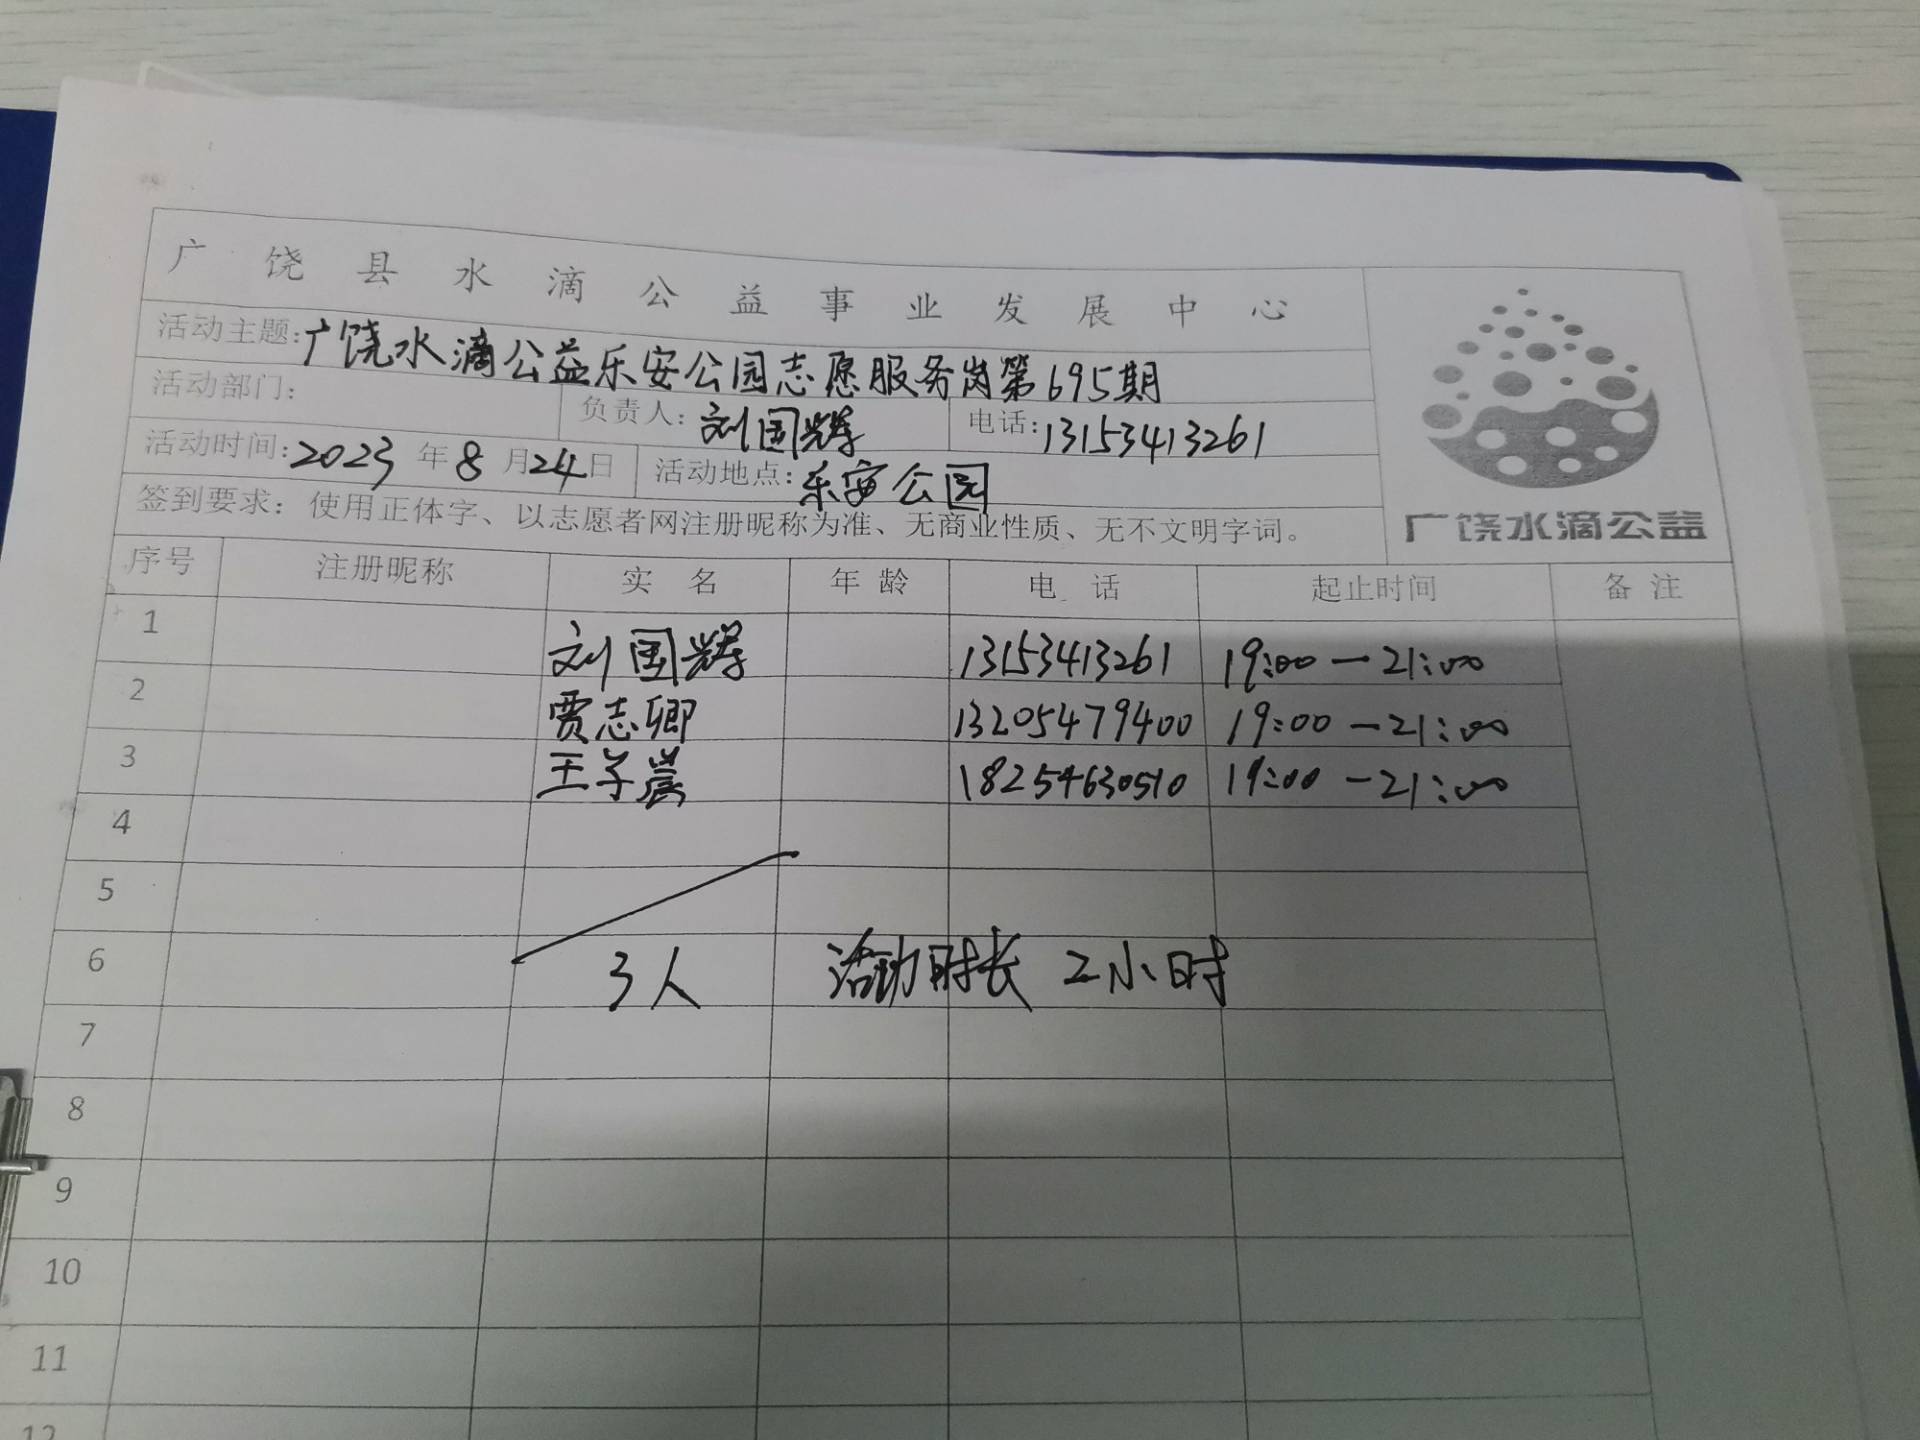 广饶县水滴公益事业发展中心
活动主题:广饶水滴公益乐安公园志愿服务岗第695期
活动部门: 负责人:刘国辉 电话:13153413261
活动时间:2023年8月24日 活动地点:乐安公园
签到要求：使用正体字、以志愿者网注册昵称为准、无商业性质、无不文明字词。
广饶水滴公益
序号 注册昵称 实名 年龄 电话 起止时间 备注
1 刘国辉 13153413261 19:00—21:00
2 贾志卿 13205479400 19:00—21:00
3 王子晨 18254630510 19:00—21:00
4
5
6 3人 活动时长 2小时
7
8
9
10
11
12